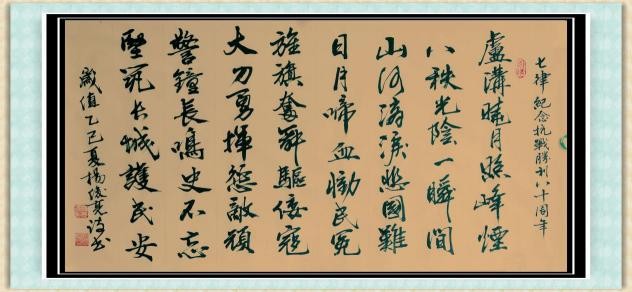 七律 紀念抗戰勝利八十周年
盧溝曉月照峰煙
八秩光陰一瞬間
山河滴淚悲國難
日月啼血慟民冤
旌旗奮舞驅倭寇
大刀勇揮懲敵頑
警鐘長鳴史不忘
堅筑長城護民安
歲值乙巳夏楊俊亮詩書